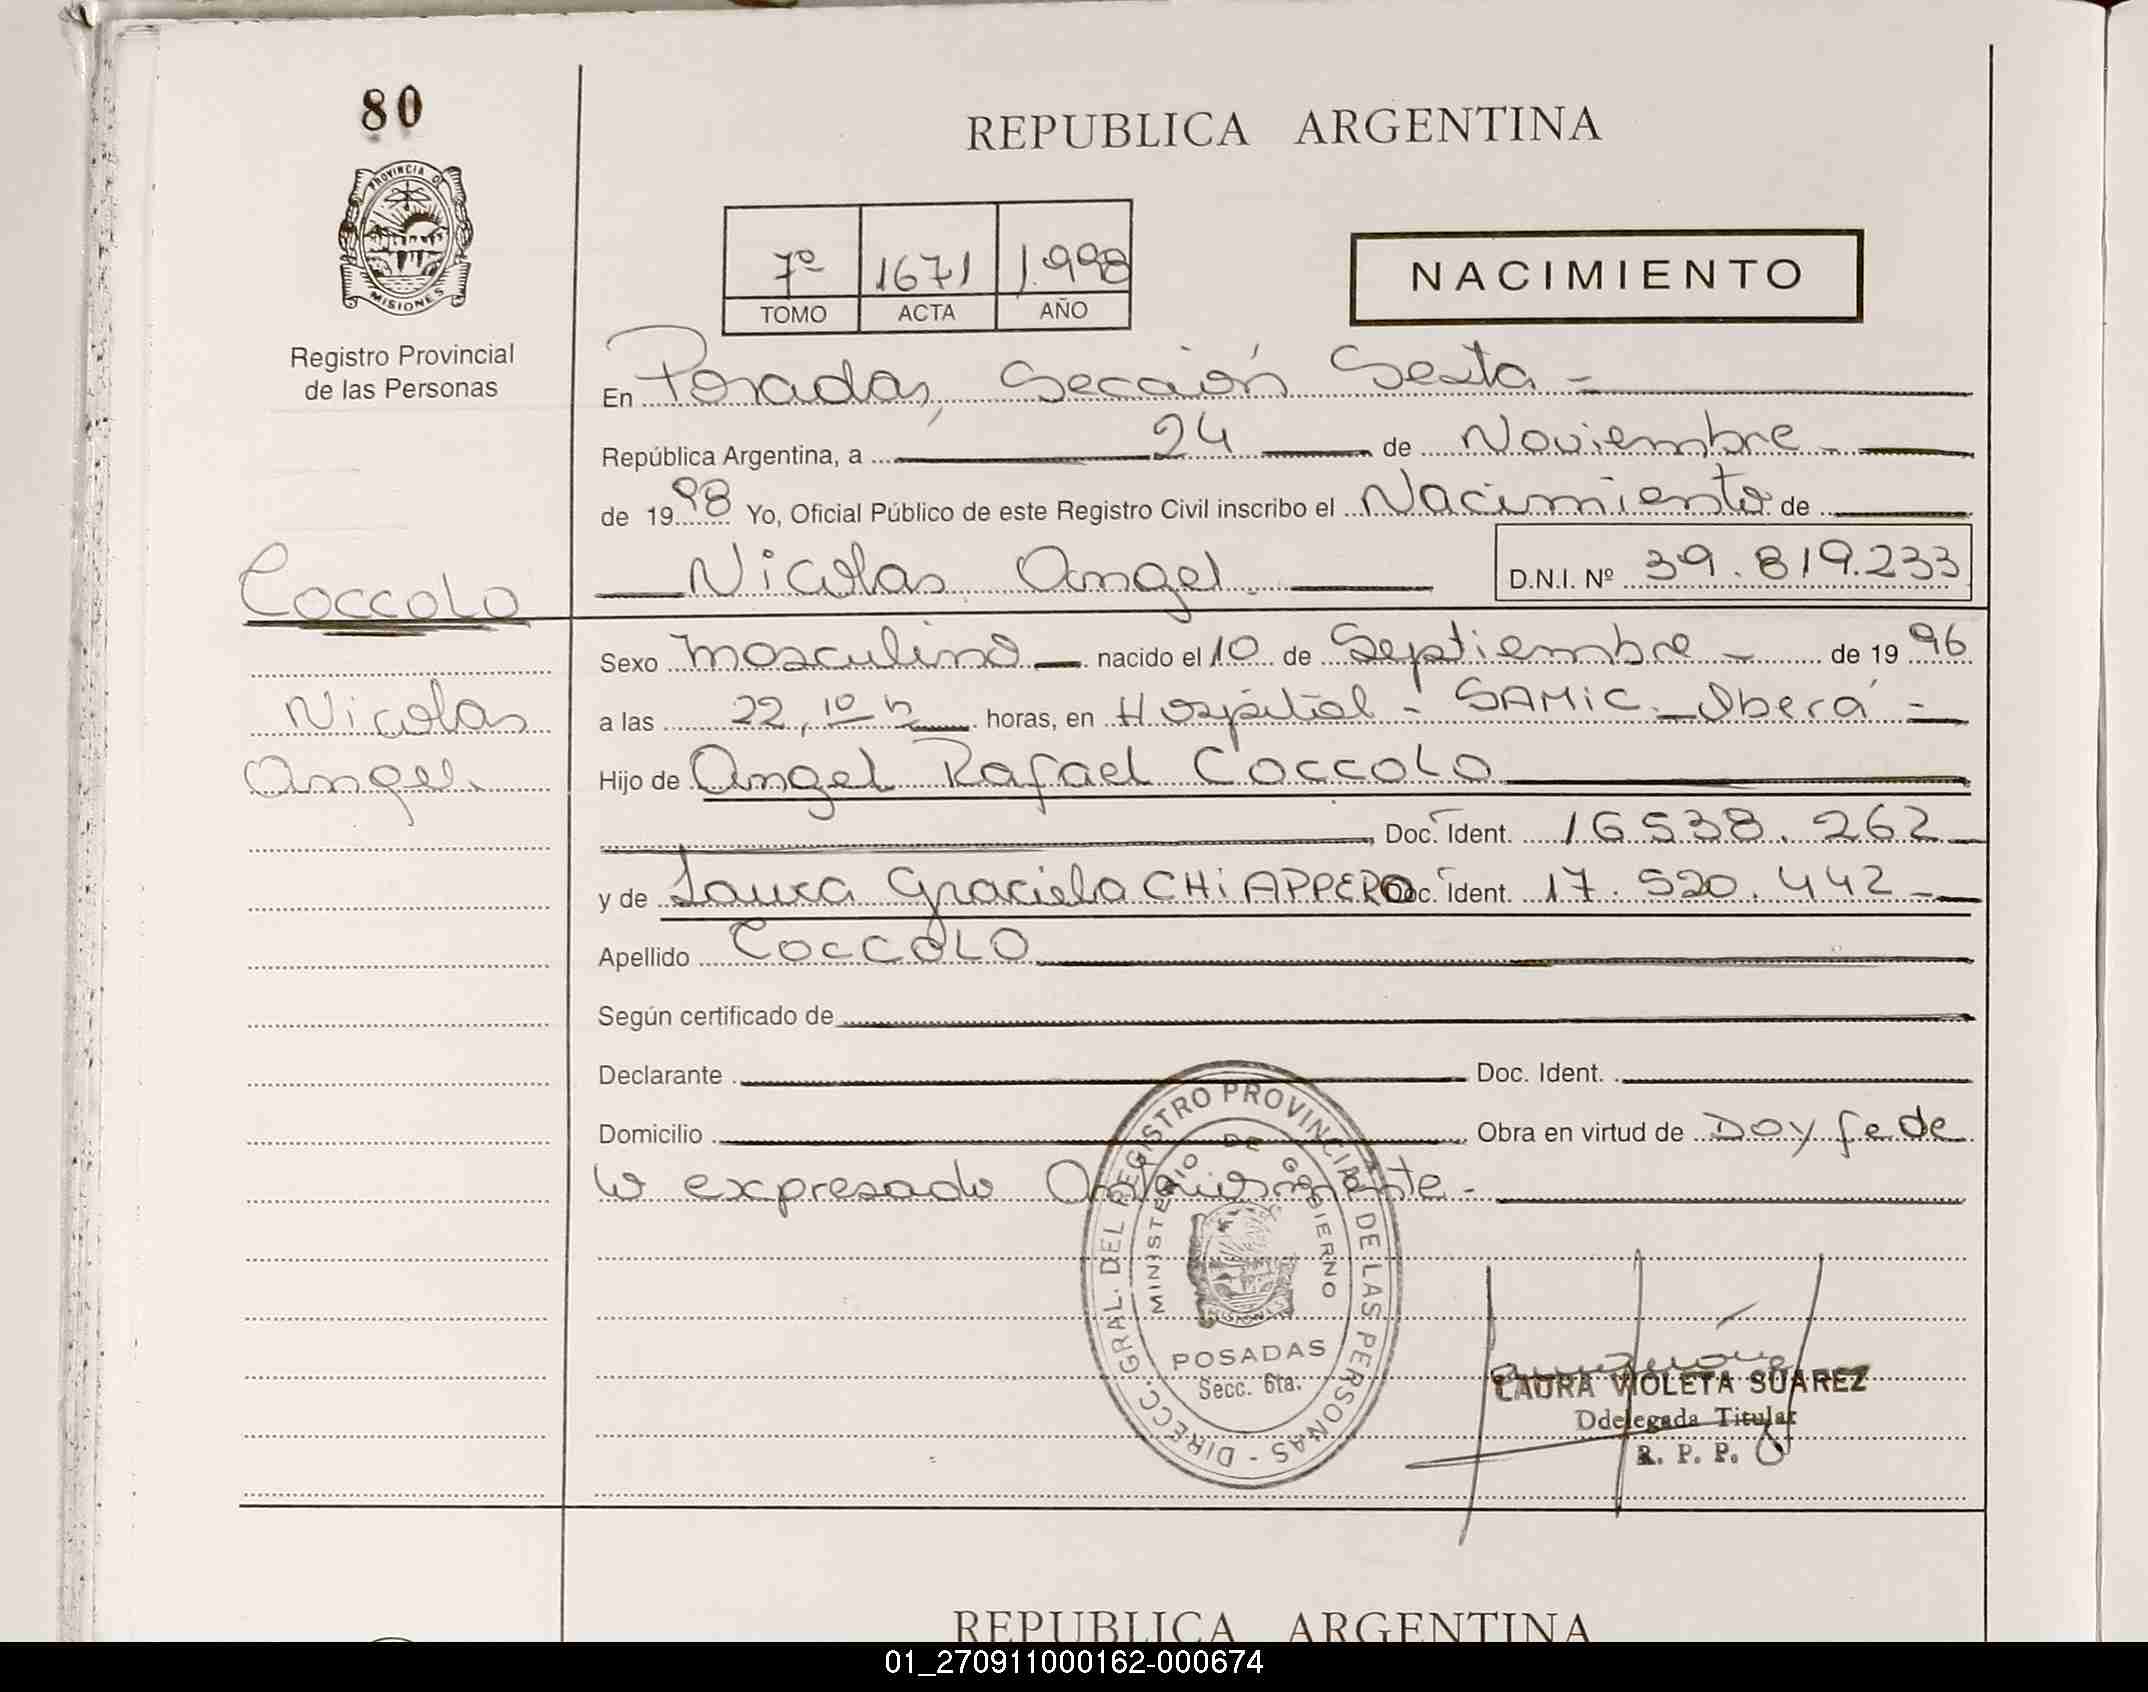 80
PROVINCIA DE
MISIONES
Registro Provincial
de las Personas
REPUBLICA ARGENTINA
7º 1671 1.998
TOMO ACTA AÑO
NACIMIENTO
En Posadas, Sección Sexta -
República Argentina, a 24 de Noviembre
de 1998 Yo, Oficial Público de este Registro Civil inscribo el Nacimiento de
Nicolas Angel D.N.I. Nº 39.819.233
Coccolo
Nicolas
Angel
Sexo masculino nacido el 10 de Septiembre - de 1996
a las 22,10 h horas, en Hospital - SAMiC - Oberá -
Hijo de Angel Rafael Coccolo
Doc. Ident. 16.538.262
y de Laura Graciela CHiAPPERO Doc. Ident. 17.520.442 -
Apellido COCCOLO
Según certificado de
Declarante Doc. Ident.
Domicilio Obra en virtud de Doy fe de
lo expresado Anteriormente -
DIRECC. GRAL. DEL REGISTRO PROVINCIAL DE LAS PERSONAS -
MINISTERIO DE GOBIERNO
MISIONES
POSADAS
Secc. 6ta.
LAURA VIOLETA SUAREZ
Ddelegada Titular
R. P. P.
REPUBLICA ARGENTINA
01_270911000162-000674